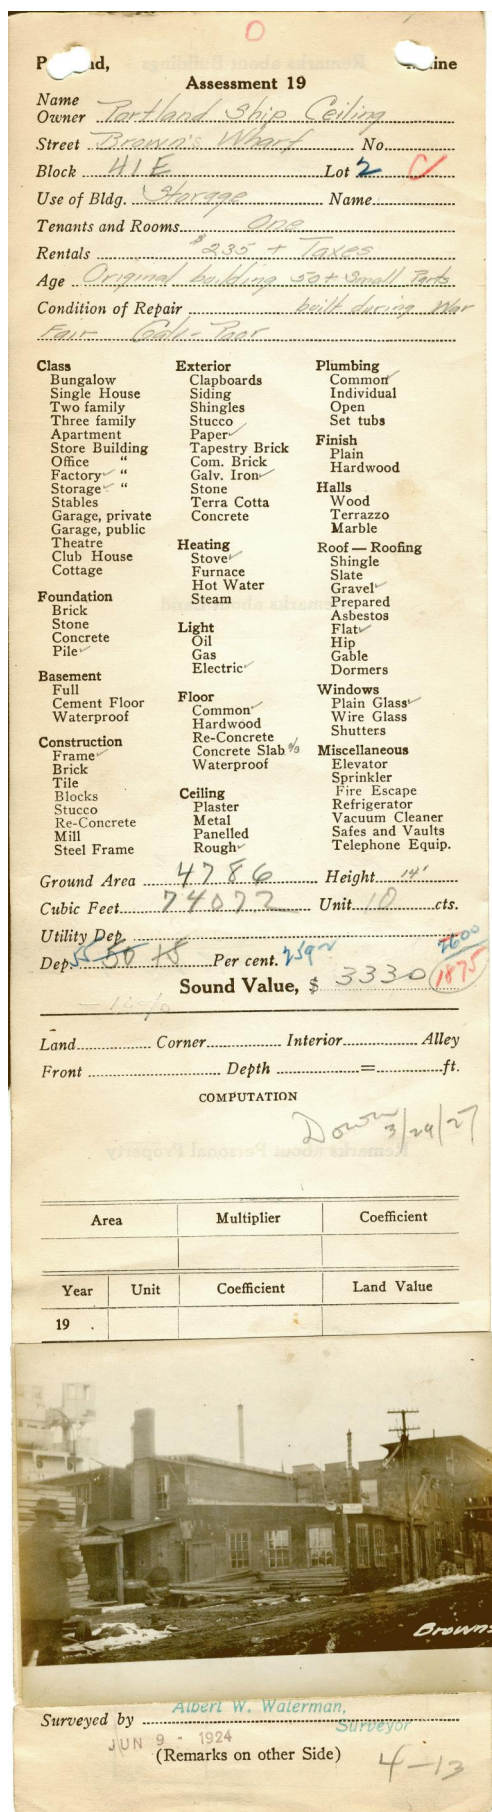 P nd, aine
Assessment 19
Name
Owner Portland Ship Ceiling
Street Brown's Wharf No.
Block 41E Lot 2
Use of Bldg. Storage Name
Tenants and Rooms One
Rentals $235 + Taxes
Age Original building 50+ Small Parts
Condition of Repair built during War
Fair Galv-Poor
Class
Bungalow
Single House
Two family
Three family
Apartment
Store Building
Office "
Factory ✓ "
Storage ✓ "
Stables
Garage, private
Garage, public
Theatre
Club House
Cottage
Foundation
Brick
Stone
Concrete
Pile ✓
Basement
Full
Cement Floor
Waterproof
Construction
Frame ✓
Brick
Tile
Blocks
Stucco
Re-Concrete
Mill
Steel Frame
Exterior
Clapboards
Siding
Shingles
Stucco
Paper ✓
Tapestry Brick
Com. Brick
Galv. Iron ✓
Stone
Terra Cotta
Concrete
Heating
Stove ✓
Furnace
Hot Water
Steam
Light
Oil
Gas
Electric ✓
Floor
Common ✓
Hardwood
Re-Concrete
Concrete Slab
Waterproof
Ceiling
Plaster
Metal
Panelled
Rough ✓
Plumbing
Common ✓
Individual
Open
Set tubs
Finish
Plain
Hardwood
Halls
Wood
Terrazzo
Marble
Roof — Roofing
Shingle
Slate
Gravel ✓
Prepared
Asbestos
Flat ✓
Hip
Gable
Dormers
Windows
Plain Glass ✓
Wire Glass
Shutters
Miscellaneous
Elevator
Sprinkler
Fire Escape
Refrigerator
Vacuum Cleaner
Safes and Vaults
Telephone Equip.
Ground Area 4786 Height 14'
Cubic Feet 74072 Unit 10 cts.
Utility Dep. 2600
Dep. 55 Per cent.
Sound Value, $ 3330 1875
Land Corner Interior Alley
Front Depth = ft.
COMPUTATION
Down 3/29/27
Area Multiplier Coefficient
Year Unit Coefficient Land Value
19 .
Browns
Surveyed by Albert W. Waterman,
Surveyor
JUN 9 - 1924
(Remarks on other Side)
4-13